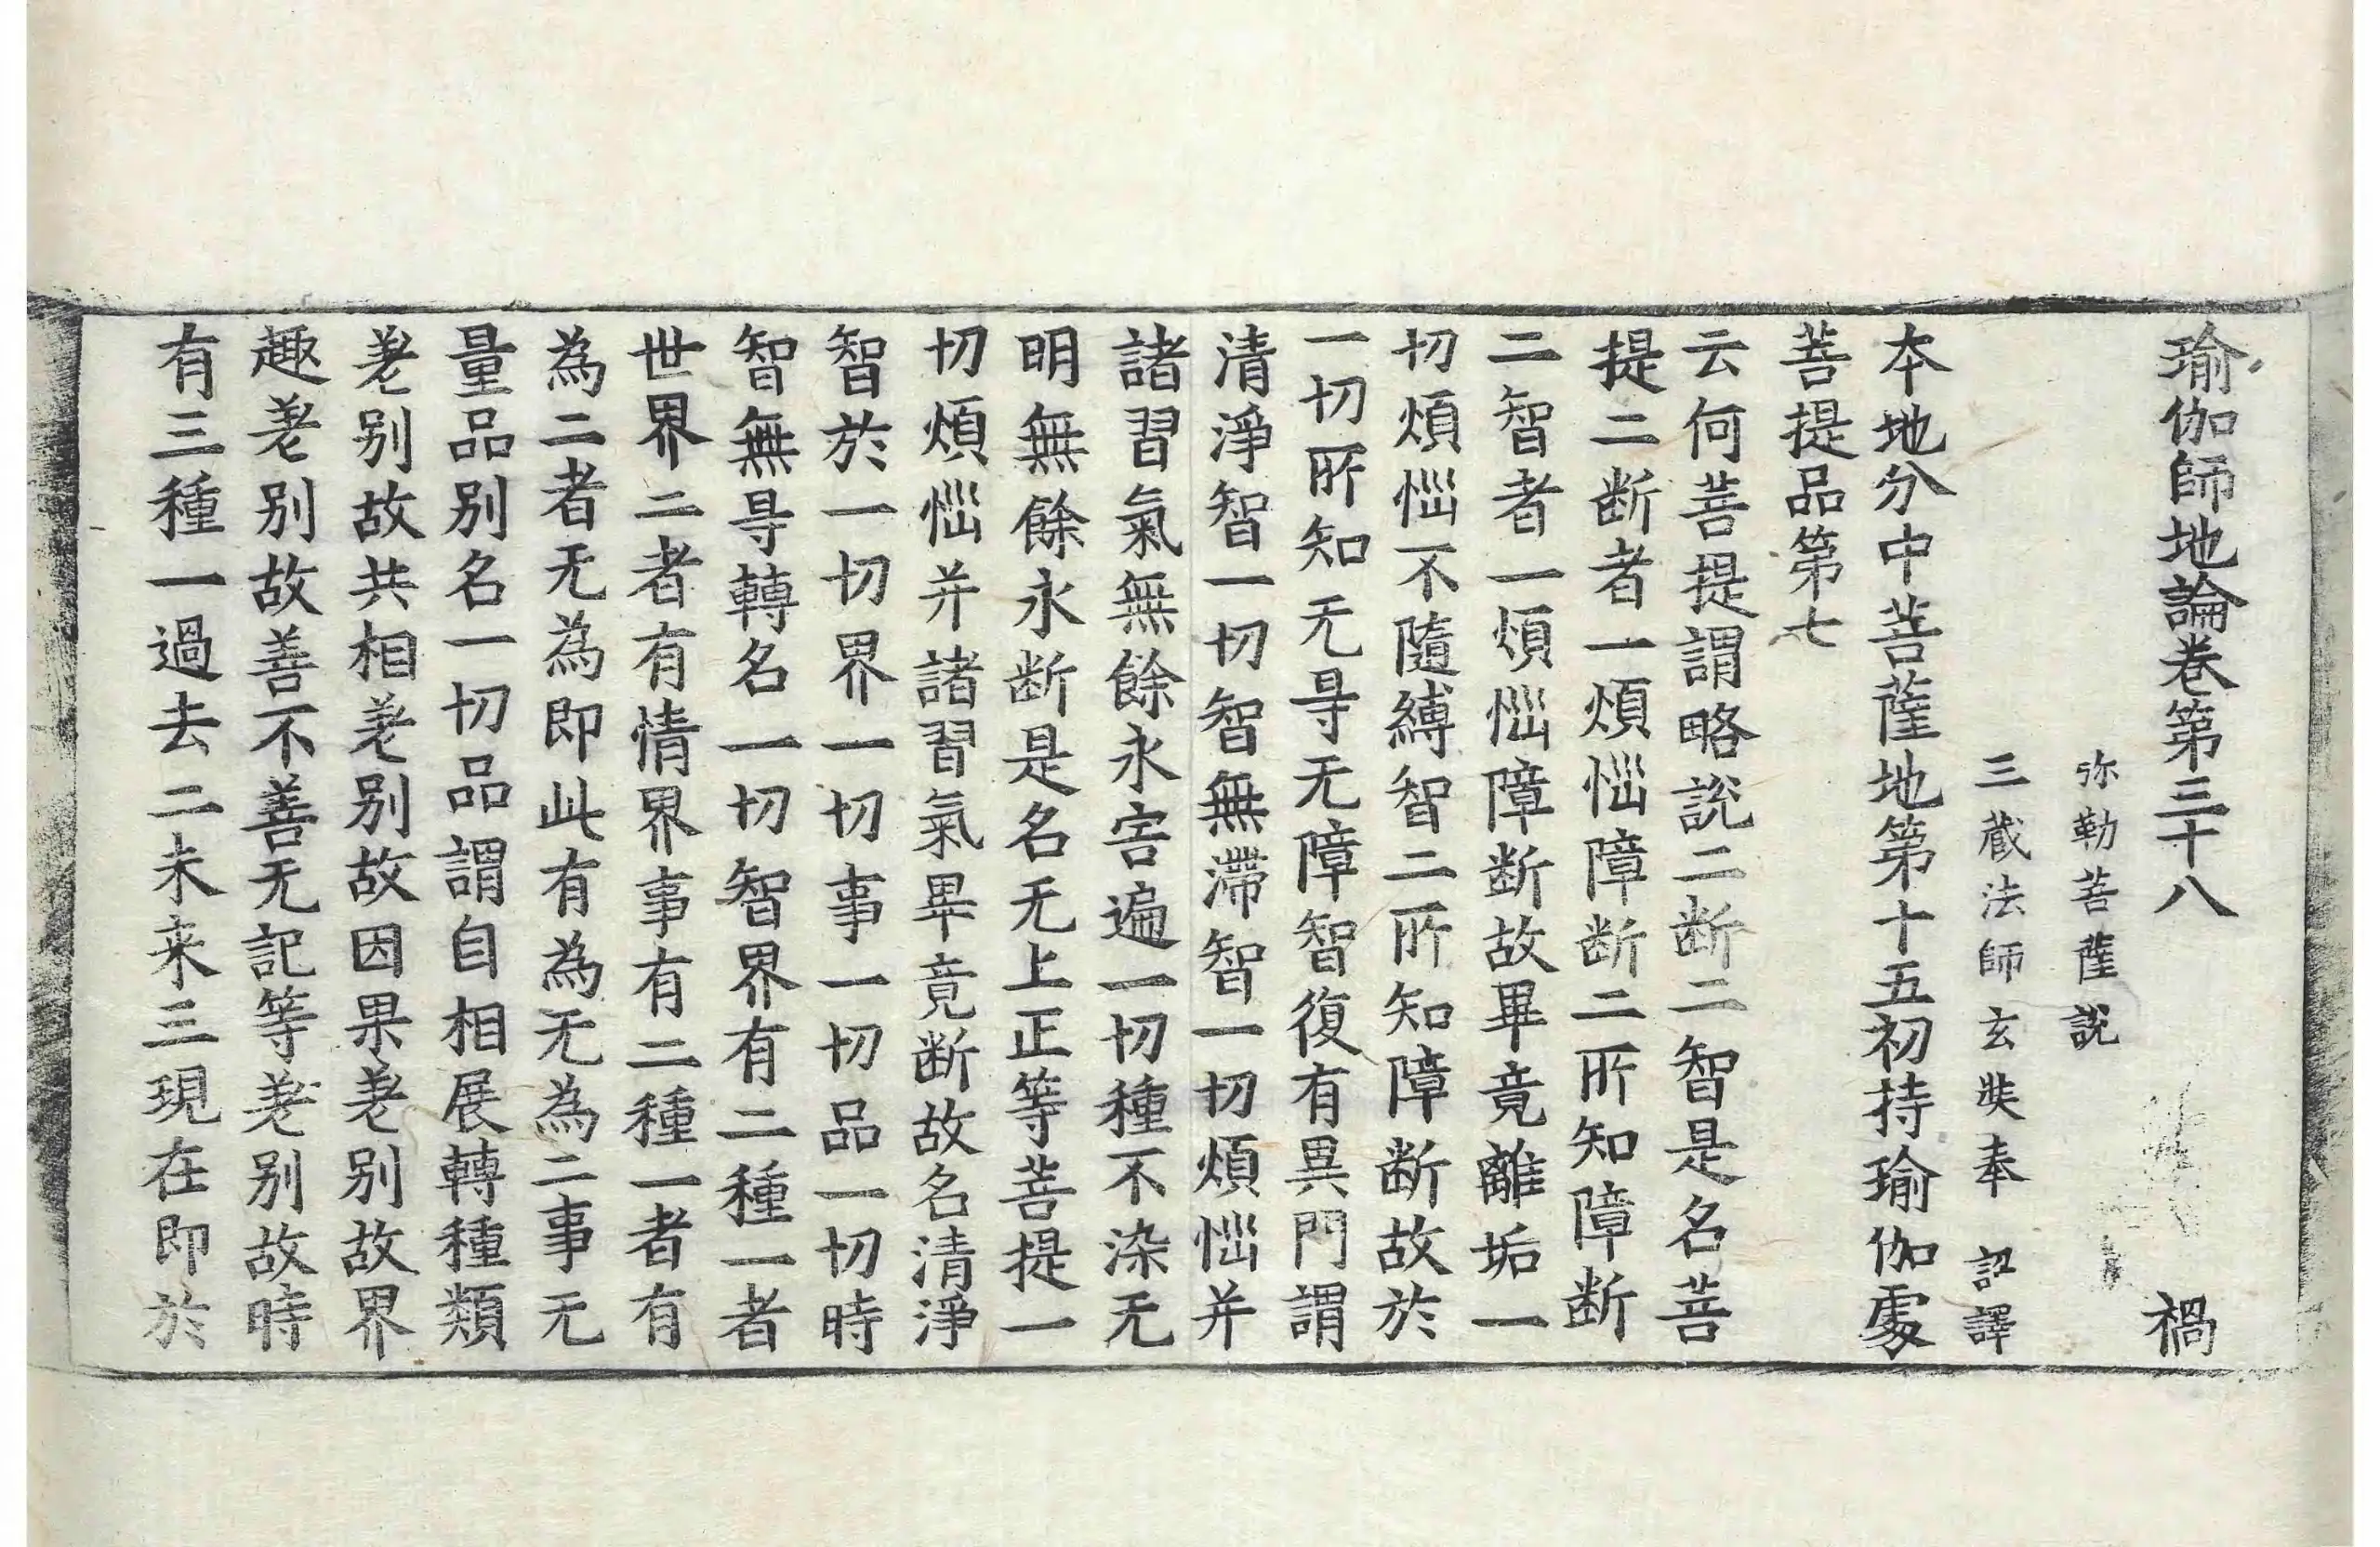 瑜伽師地論卷第三十八 禍
弥勒菩薩說
三藏法師玄奘奉 詔譯
本地分中菩薩地第十五初持瑜伽處
菩提品第七
云何菩提謂略說二断二智是名菩
提二断者一煩惱障断二所知障断
二智者一煩惱障断故畢竟離垢一
切煩惱不隨縛智二所知障断故於
一切所知无㝵无障智復有異門謂
清淨智一切智無滯智一切煩惱并
諸習氣無餘永害遍一切種不染无
明無餘永断是名无上正等菩提一
切煩惱并諸習氣畢竟断故名清淨
智於一切界一切事一切品一切時
智無㝵轉名一切智界有二種一者
世界二者有情界事有二種一者有
為二者无為即此有為无為二事无
量品別名一切品謂自相展轉種類
差別故共相差別故因果差別故界
趣差別故善不善无記等差別故時
有三種一過去二未来三現在即於